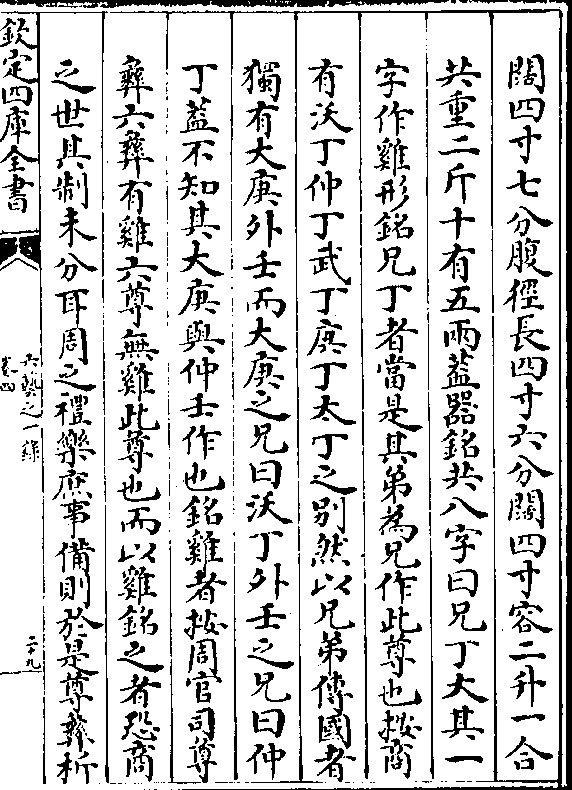 闊四寸七分腹徑長四寸六分闊四寸容二升一合
共重二斤十有五兩蓋器銘共八字曰兄丁大其一
字作雞形銘兄丁者當是其弟為兄作此尊也按商
有沃丁仲丁武丁庚丁太丁之别然以兄弟傳國者
獨有大庚外壬而大庚之兄曰沃丁外壬之兄曰仲
丁葢不知其大庚與仲壬作也銘雞者按周官司尊
彛六彛有雞六尊無雞此尊也而以雞銘之者恐商
之世其制未分耳周之禮樂庶事備則於是尊彛析
欽定四庫全書
六藝之一錄
卷四
二十九